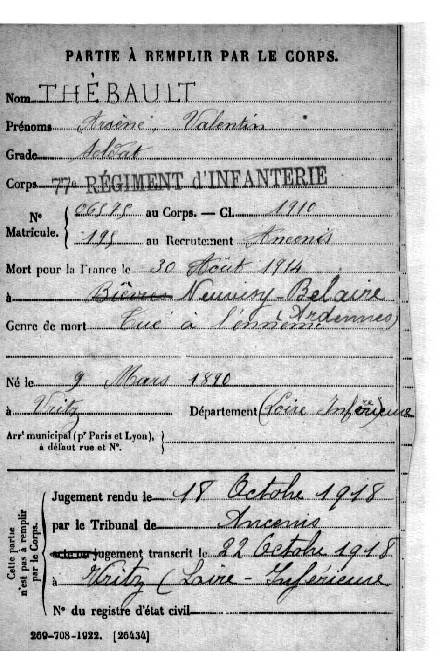 PARTIE À REMPLIR PAR LE CORPS.
Nom THÉBAULT
Prénoms Arsène, Valentin
Grade Soldat
Corps 77e RÉGIMENT d'INFANTERIE
No Matricule. { 06575 au Corps. — Cl. 1910
195 au Recrutement Ancenis
Mort pour la France le 30 Août 1914
à Bièvres Neuvizy-Belaire
(Ardennes)
Genre de mort Tué à l'ennemi
Né le 9 Mars 1890
à Vritz Département (Loire Inférieure
Arrt municipal (pr Paris et Lyon),
à défaut rue et No.
Cette partie n'est pas à remplir par le Corps.
Jugement rendu le 18 Octobre 1918
par le Tribunal de Ancenis
acte ou jugement transcrit le 22 Octobre 1918
à Vritz (Loire-Inférieure
No du registre d'état civil
269-708-1922. [26434]